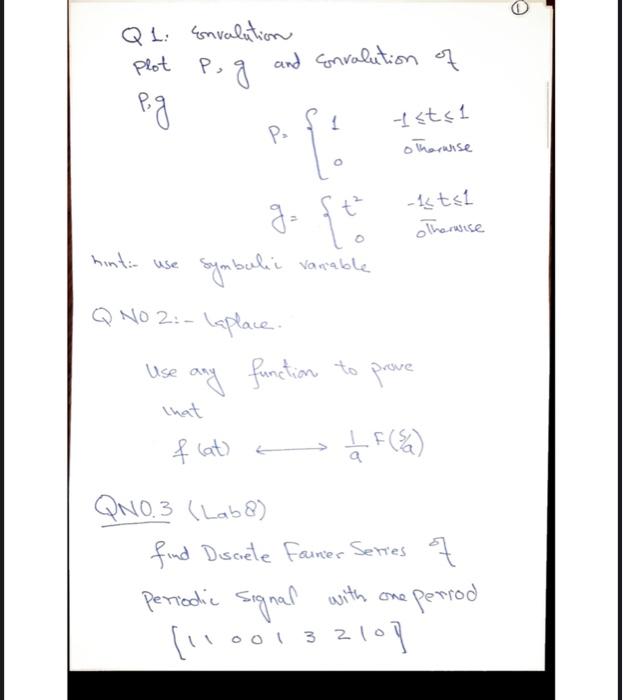 ①
Q 1: Convalution
Plot P, g and Convalution of
P, g
P = { 1 -1 ≤ t ≤ 1
0 otherwise
g = { t² -1 ≤ t ≤ 1
0 otherwise
hint:- use symbulic variable
Q NO 2:- Laplace.
Use any function to prove
that
f (at) ⟷ 1/a F(s/a)
Q NO. 3 (Lab 8)
find Discrete Fourier Series of
Periodic Signal with one period
[1 1 0 0 1 3 2 1 0]